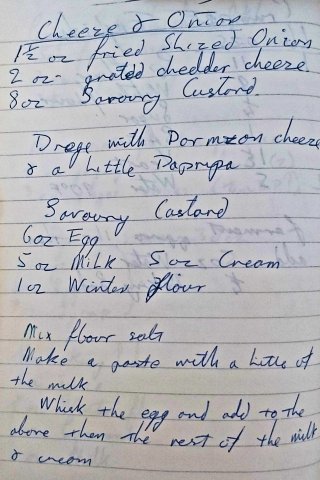 Cheeze & Onion
1½ oz fried Slized Onion
2 oz. grated chedder cheeze.
8oz Savoury Custard.
Drege with Parmzon cheeze
& a little Papripa
Savoury Castard
6oz Egg
5 oz Milk 5oz Cream
1oz Winter flour
Mix flour salt
Make a paste with a little of
the milk
Whisk the egg and add to the
above then the rest of the milk
& cream